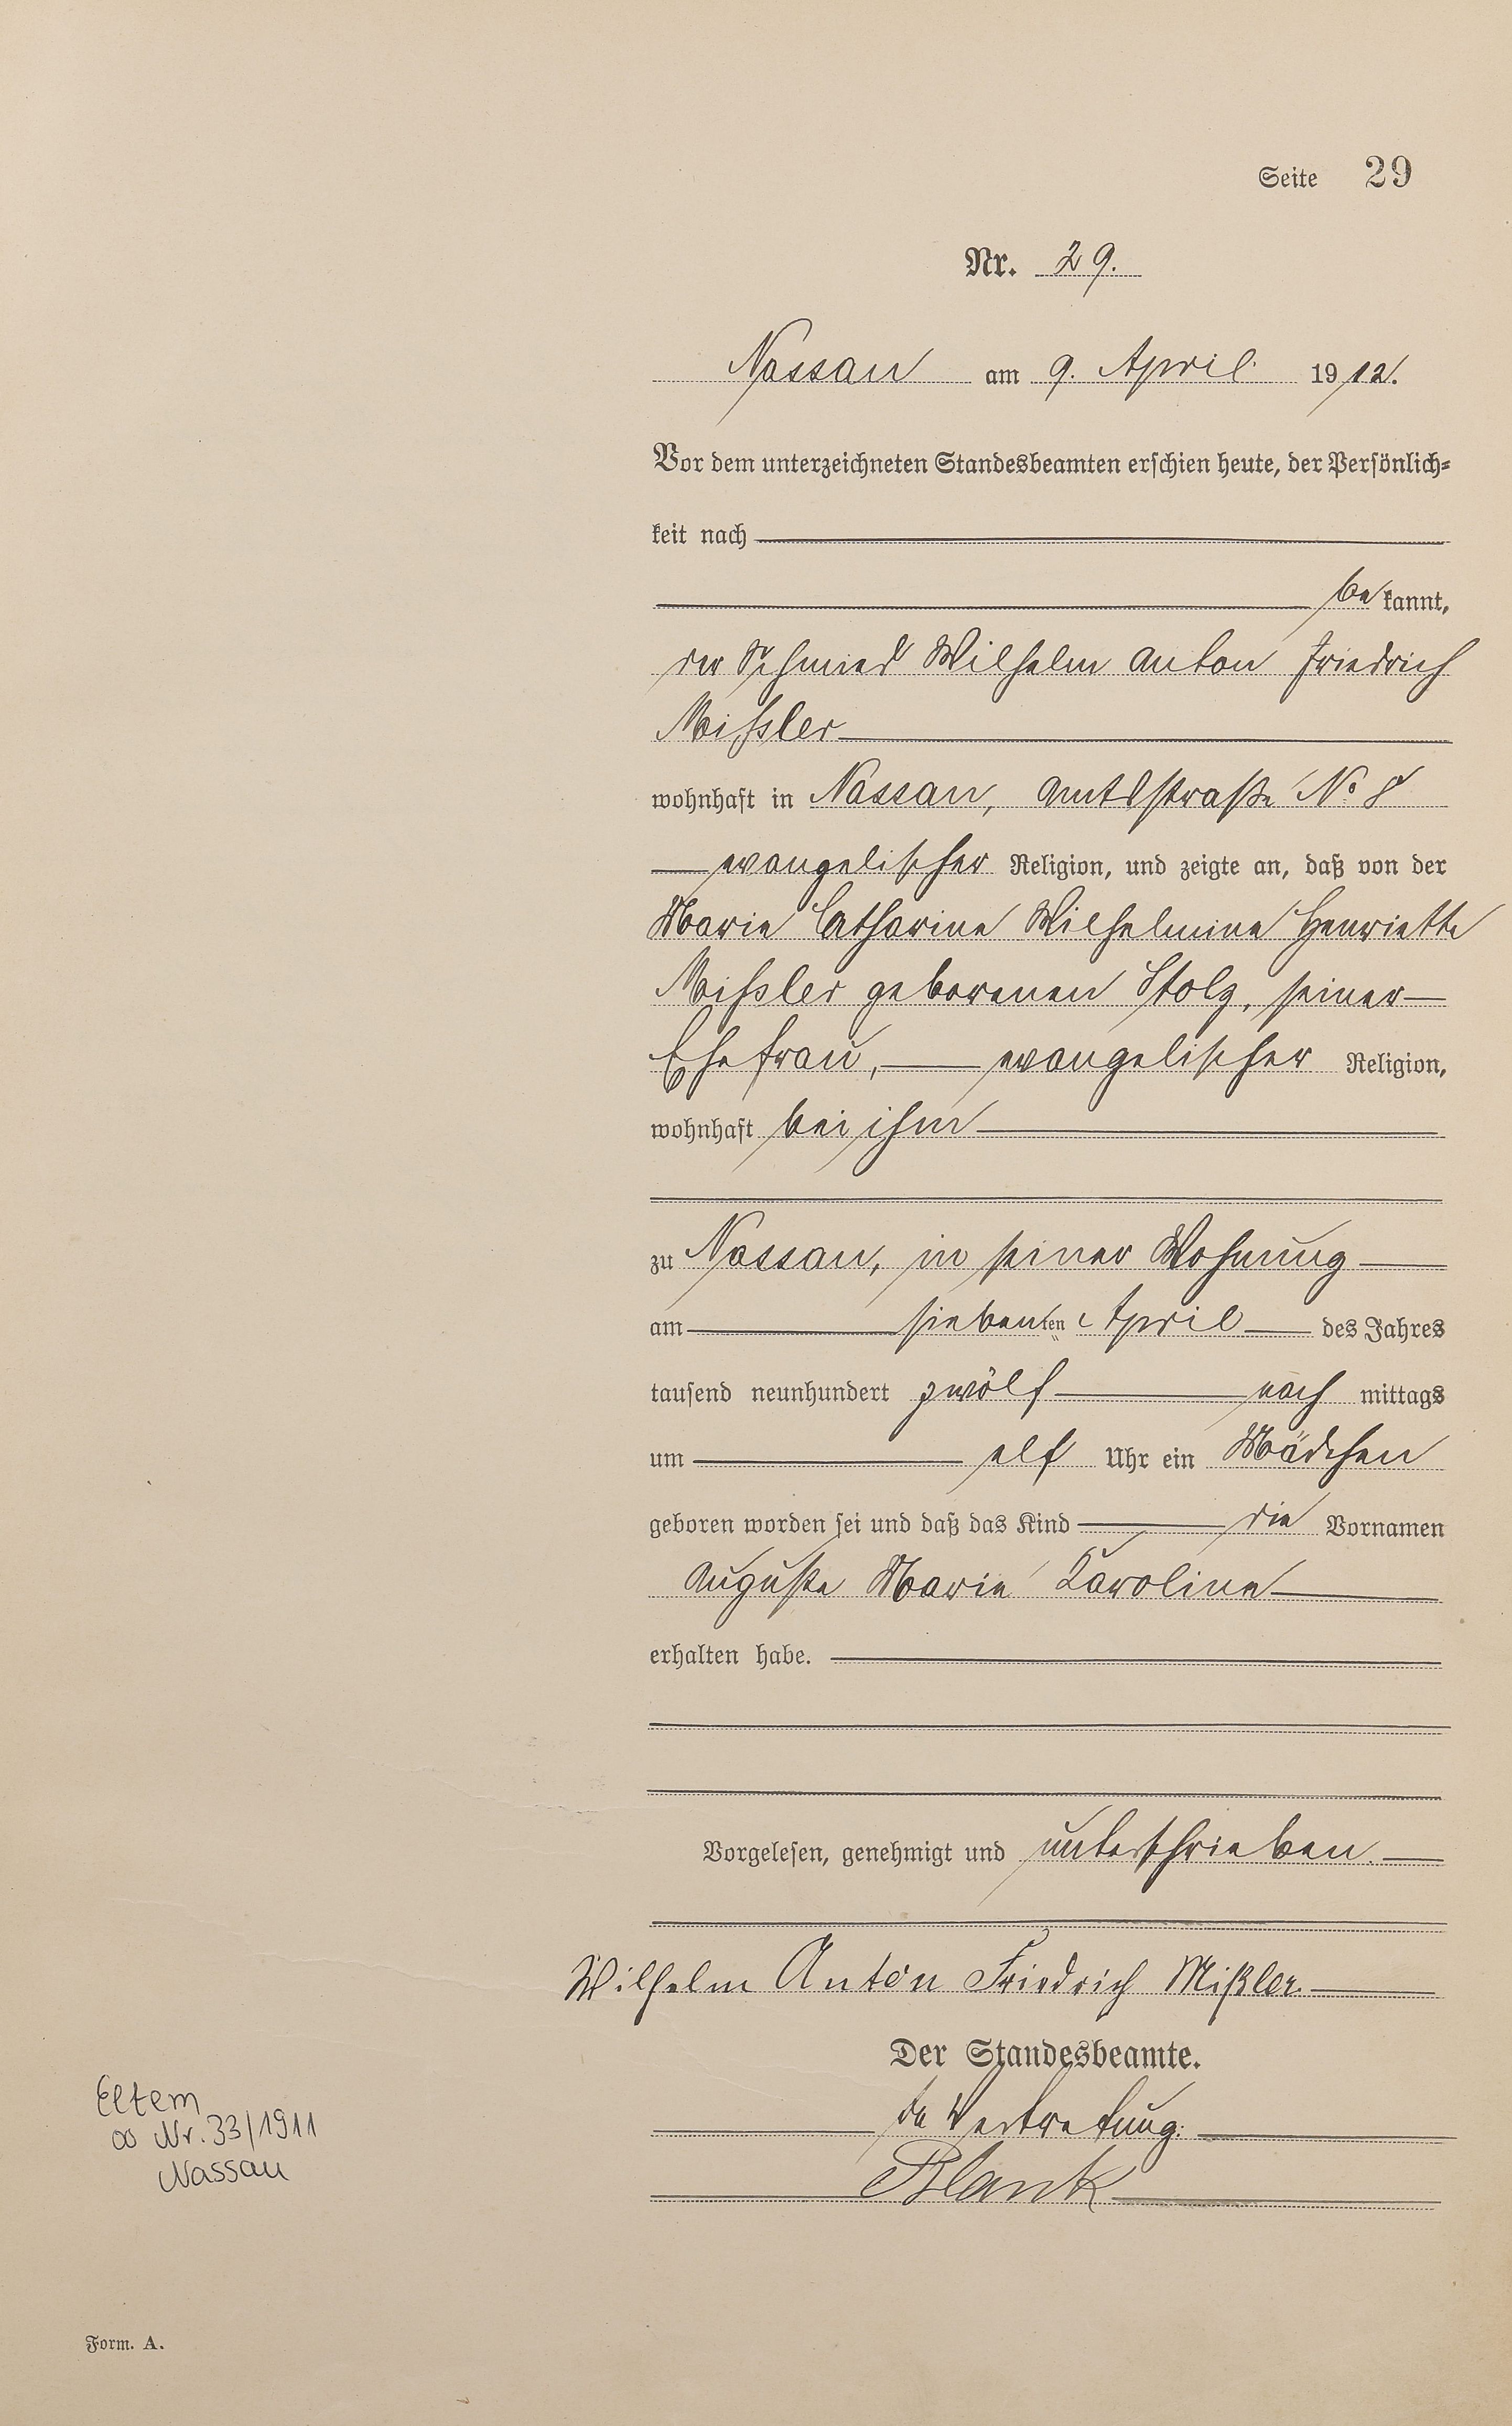 Seite 29
Nr. 29.
Nassau am 9. April 1912.
Vor dem unterzeichneten Standesbeamten erschien heute, der Persönlich-
keit nach
be kannt,
der Schmied Wilhelm Anton Friedrich
Missler
wohnhaft in Nassau, Amtsstraße No 8
evangelischer Religion, und zeigte an, daß von der
Marie Catharine Wilhelmine Henriette
Missler geborenen Stolz, seiner
Ehefrau, evangelischer Religion,
wohnhaft bei ihm
zu Nassau, in seiner Wohnung
am siebenten April des Jahres
tausend neunhundert zwölf nach mittags
um elf Uhr ein Mädchen
geboren worden sei und daß das Kind die Vornamen
Auguste Marie Karoline
erhalten habe.
Vorgelesen, genehmigt und unterschrieben.
Wilhelm Anton Friedrich Mißler.
Der Standesbeamte.
In Vertretung:
Blank
Eltern
∞ Nr. 33/1911
Nassau
Form. A.